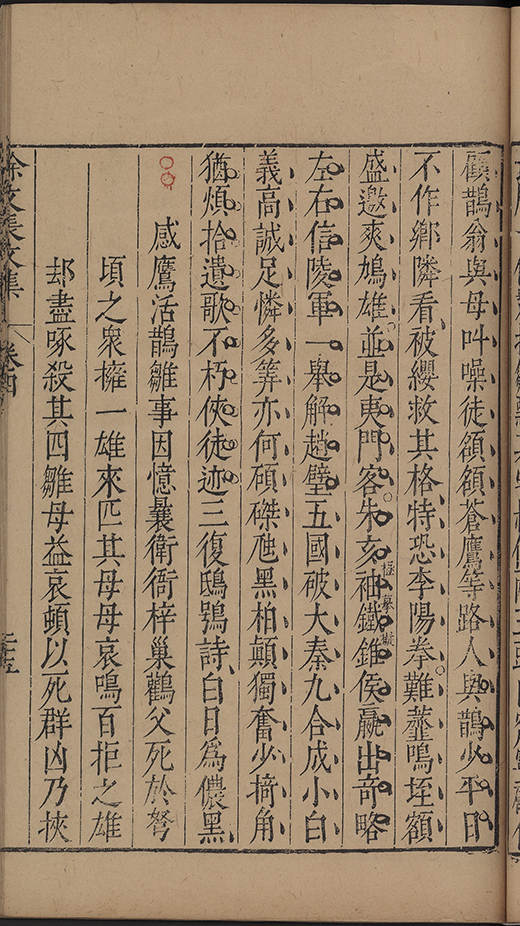 顧鵲翁與母叫噪徒頷頷蒼鷹等路人與鵲少平日
不作鄉隣看被纓救其格特恐李陽拳難虀鳴垤額
盛邀爽鳩雄並是夷門客朱亥袖鐵錐侯嬴出奇略
極摹擬
左右信陵軍一舉解趙壁五國破大秦九合成小白
義高誠足憐多筭亦何碩磔虺黑柏顛獨奮少掎角
猶煩拾遺歌不朽俠徒迹三復鴟鴞詩白日為儂黑
感鷹活鵲雛事因憶曩衛衙梓巢鸛父死於弩
頃之衆擁一雄來匹其母母哀鳴百拒之雄
却盡啄殺其四雛母益哀頓以死群凶乃挾
徐文長文集
卷四
二十五